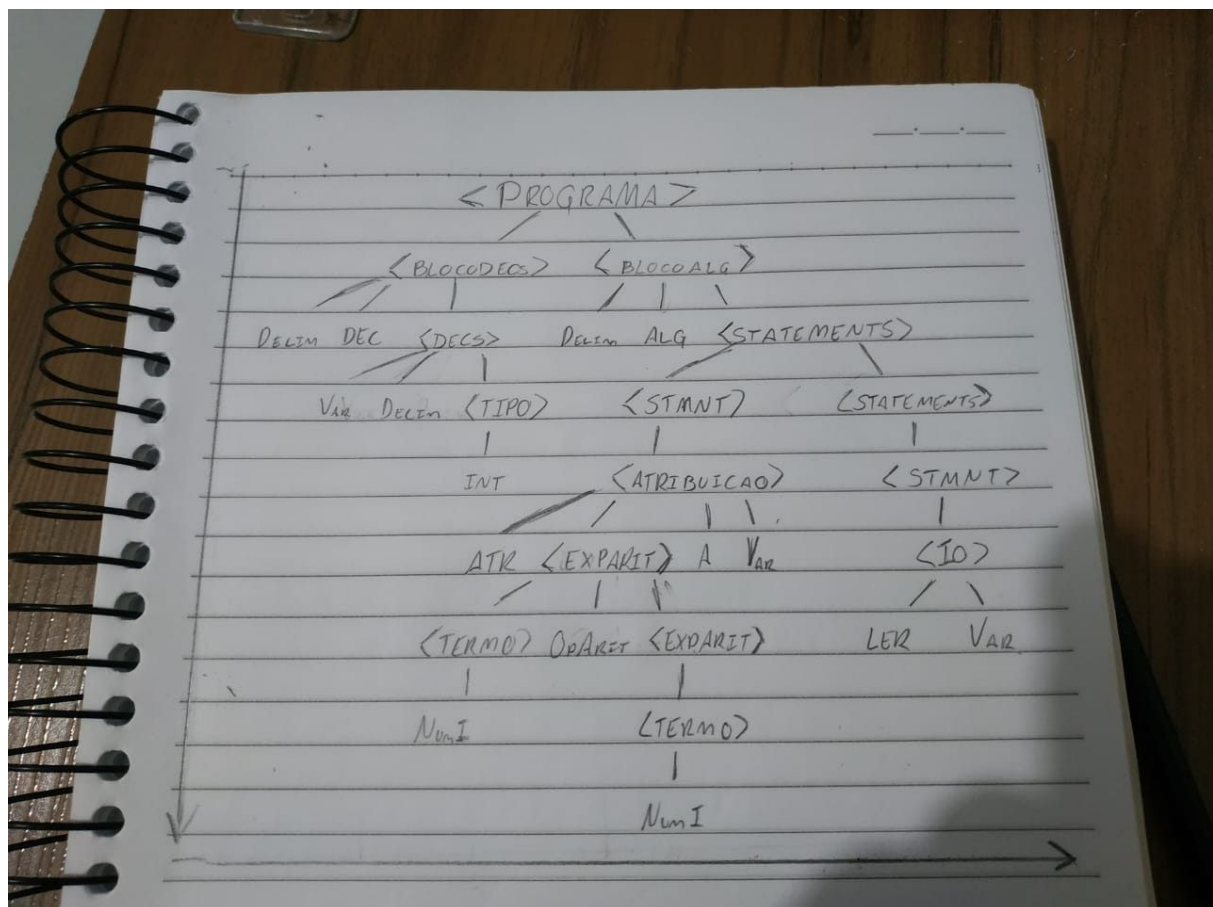 <PROGRAMA>
<BLOCODECS> <BLOCOALG>
DELIM DEC <DECS> DELIM ALG <STATEMENTS>
VAR DELIM <TIPO> <STMNT> <STATEMENTS>
INT <ATRIBUICAO> <STMNT>
ATR <EXPARIT> A VAR <IO>
<TERMO> OPARIT <EXPARIT> LER VAR
NumI <TERMO>
NumI